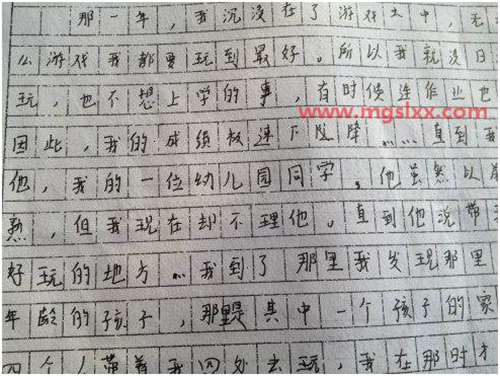 那一年，我沉没在了游戏之中，无
么游戏我都要玩到最好。所以我就没日
玩，也不想上学的事，有时候连作业也
www.mgslxx.com
因此，我的成绩极速下坠降……直到
他，我的一位幼儿园同学，他虽然以
熟，但我现在却不理他。直到他说带
好玩的地方…我到了那里我发现那里
年龄的孩子，那里是其中一个孩子的家
四个人带着我四处去玩，我在那时才